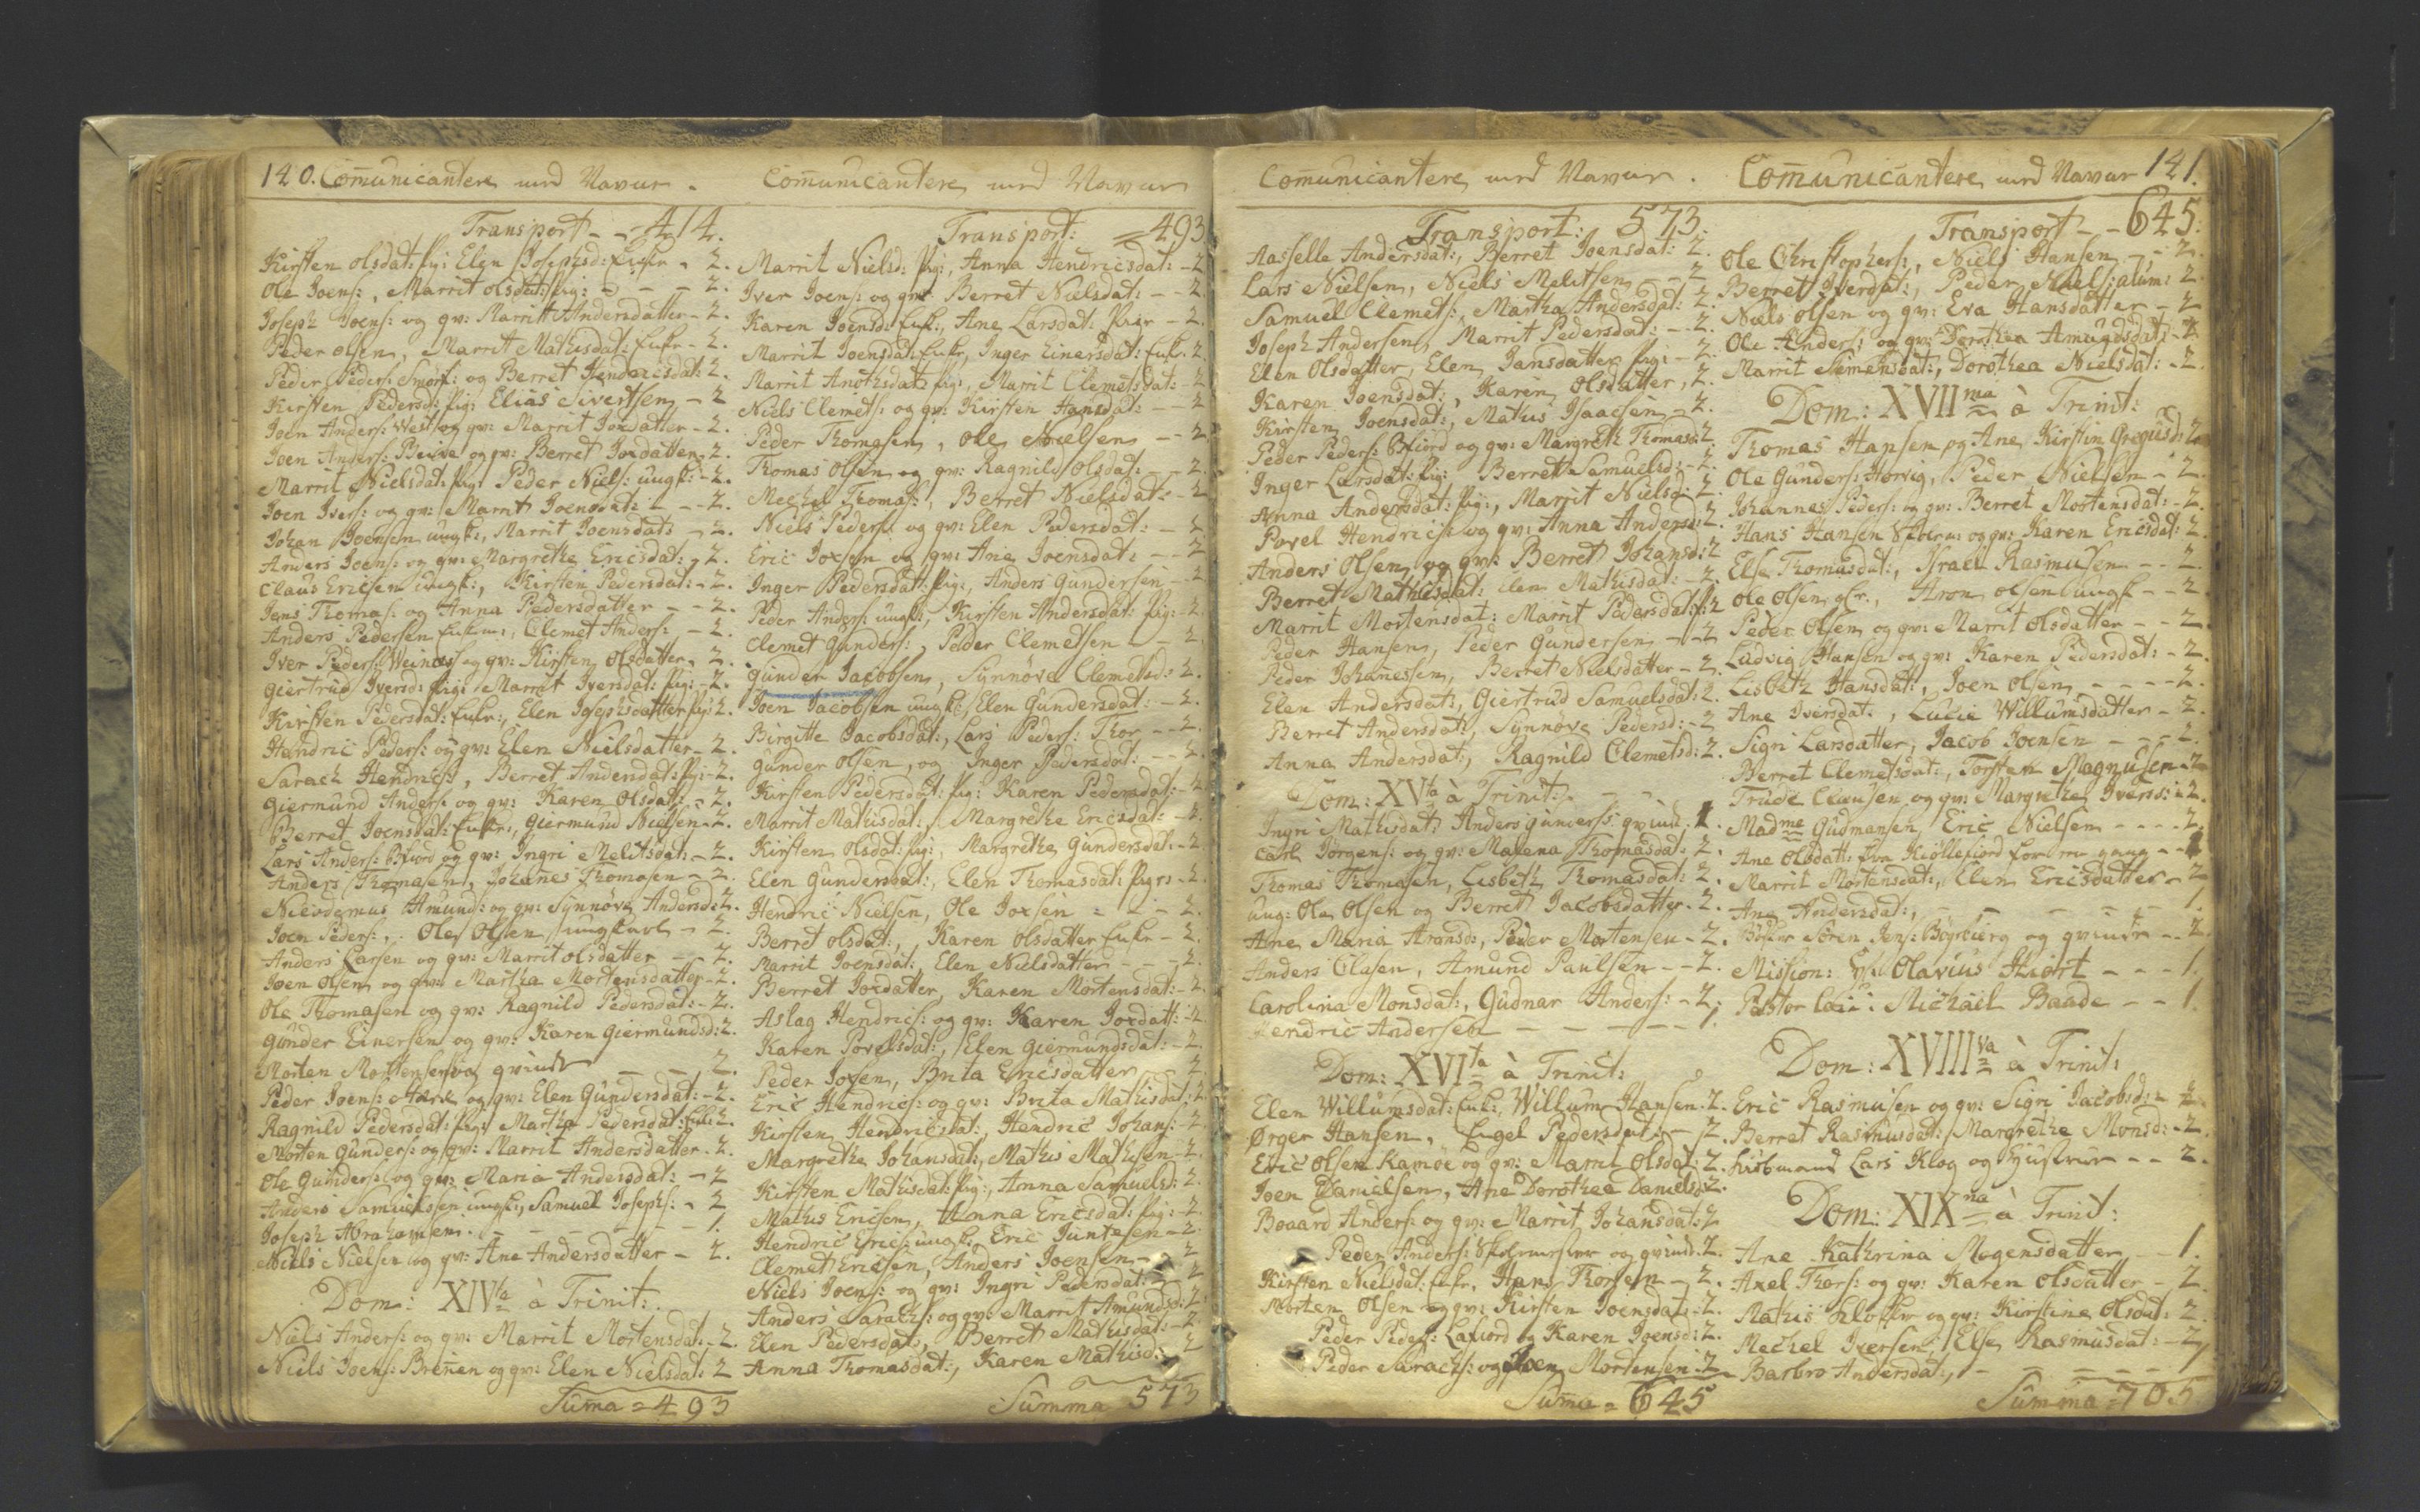 140. Com̄unicantere med Navne.
Transport - - 414.
Kirsten olsdat: pig: Elen Josephsd: Enke - 2.
Ole Joens:, Marrit olsdat: pig: - - - 2.
Joseph Joens: og qv: Marritt Andersdatter - 2.
Peder olsen, Marrit Mathisdat: Enke - 2.
Peder Peders: Smorf: og Berret Hendricsdat: 2.
Kirsten Pedersd: pig: Elias Sivertsen - 2
Joen Anders: West og qv: Marrit Joxdatter - 2.
Joen Anders: og qv: Berret Joxdatter - 2.
Marrit Nielsdat: pig: Peder Niels: ungk: - 2.
Joen Ivers: og qv: Marrit Joensdat: - - 2.
Johan Joensen ungk:, Marrit Joensdat: - 2.
Anders Joens: og qv: Margrethe Ericsdat: - 2.
Claus Ericsen ungk:, Kirsten Pedersdat: - 2.
Jens Thomas: og Anna Pedersdatter - - 2.
Anders Pedersen Enkem:, Clemet Anders: - 2.
Iver Peders: Weines og qv: Kirsten Olsdatter - 2.
Giertrud Iversd: pig: Marrit Iversdat: pig: - 2.
Kirsten Pedersdat: Enke:, Elen Josephsdatter pig: 2.
Hendric Peders: og qv: Elen Nielsdatter - 2.
Sarach Hendrics:, Berret Andersdat: pig: - 2.
Giermund Anders: og qv: Karen Olsdat: - 2.
Berret Joensdat: Enke:, Giermund Nielsen - 2.
Lars Anders: Bfiord og qv: Ingri Melitsdat: - 2.
Anders Thomasen, Johanes Thomasen - 2.
Nicodemus Amund: og qv: Synnøve Andersd: 2.
Joen Peders:, Ole Olsen ungkarl - 2.
Anders Larsen og qv: Marrit olsdatter - 2.
Joen Olsen og qv: Martha Mortensdatter - 2.
Ole Thomasen og qv: Ragnild Pedersdat: - 2.
Gunder Einersen og qv: Karen Giermundsd: 2.
Morten Mortensen og qvinde - - 2.
Peder Joens: og qv: Elen Gundersdat: - 2.
Ragnild Pedersdat: pig: Martha Pedersdat: Enk: 2.
Morten Gunders: og qv: Marrit Andersdatter. 2.
Ole Gunders: og qv: Maria Andersdat: - 2
Anders Samuelssen ungk:, Samuel Josephs: - 2
Joseph Abrahamsen. - - - - - 1.
Niels Nielsen og qv: Ane Andersdatter - 2.
Dom: XIVta à Trinit:
Niels Anders: og qv: Marrit Mortensdat: - 2.
Niels Joens: Brenen og qv: Elen Nielsdat: 2
Sum̄a = 493
Com̄unicantere med Navne
Transport: = 493
Marrit Nielsd: pig:, Anna Hendricsdat: - 2
Iver Joens: og qv: Berret Nielsdat: - - 2.
Karen Joensd: Enk:, Ane Larsdat: pige - 2.
Marrit Joensdat: Enke, Inger Einersdat: Enk. 2.
Marrit Anotsdat: pig:, Marrit Clemetsdat: - 2
Niels Clemets: og qv: Kirsten Hansdat: - - 2
Peder Thomasen, ole Nielsen - - 2
Thomas Olsen og qv: Ragnild Olsdat: - - 2.
Mechel Thomas:, Berret Nielsdat: - 2
Niels Peders: og qv: Elen Pedersdat: - 2
Eric Joxsen og qv: Ane Joensdat: - - 2
Inger Pedersdat: pig:, Anders Gundersen - 2
Peder Anders: ungk:, Kirsten Andersdat: pig: - 2.
Clemet Gunders:, Peder Clemetsen - - 2
Gunder Jacobsen, Synnøve Clemetsd: 2.
Joen Jacobsen ungk:, Elen Gundersdat: - 2.
Birgitte Jacobsdat:, Lars Peders: Thor - - 2.
Gunder Olsen, og Inger Pedersdat: - - 2.
Kirsten Pedersdat: pig: Karen Pedersdat: - 2
Marrit Mathisdat:, Margrethe Ericsdat: - 2.
Kirsten Olsdat: pig:, Margrethe Gundersdat: - 2
Elen Gundersdat:, Elen Thomasdat: pige - 2.
Hendric Nielsen, Ole Joxsen - - 2.
Berret olsdat:, Karen Olsdatter Enke - 2.
Marrit Joensdat:, Elen Nielsdatter - - 2.
Berret Joxdatter, Karen Mortensdat: - 2.
Aslag Hendrics: og qv: Karen Joxdatt: - 2
Karen Povelsdat:, Elen Giermundsdat: - 2.
Peder Joxsen, Brita Ericsdatter 2.
Eric Hendrics: og qv: Brita Mathisdat: 2
Kirsten Hendricsdat:, Hendric Johans: - 2
Margrethe Johansdat:, Mathis Mathisen - 2.
Kirsten Mathisdat: pig:, Anna Samuelsd: 2.
Mathis Ericsen, Anna Ericsdat: pig: - 2.
Hendric Erics: ungk:, Eric Juntesen - 2.
Clemet Ericsen, Anders Joensen - 2
Niels Joens: og qv: Ingri Pedersdat: 2
Anders Sarachs: og qv: Marrit Amundsd: 2.
Elen Pedersdat:, Berret Mathisdat: - 2
Anna Thomasdat:, Karen Mathisd: 2
Summa 573
Com̄unicantere med Navne.
Transport: 573.
Aassella Andersdat:, Berret Joensdat: 2.
Lars Nielsen, Niels Melitsen - - 2
Samuel Clemets:, Martha Andersdat: 2.
Joseph Andersen, Marrit Pedersdat: - - 2.
Elen Olsdatter, Elen Jansdatter pig: - 2.
Karen Joensdat:, Karen Olsdatter, 2.
Kirsten Joensdat:, Mathis Isaacsen - 2.
Peder Peders: Bfiord og qv: Margreth Thomasd: 2.
Inger Larsdat: pig: Berret Samuelsd: - 2.
Anna Andersdat: pig:, Marrit Nielsd: 2.
Povel Hendrics: og qv: Anna Andersd: 2.
Anders Olsen og qv: Berret Johansd: 2
Berret Mathisdat: Elen Mathisdat: - 2.
Marrit Mortensdat: Marrit Pedersdat: p: 2
Peder Hansen, Peder Gundersen - - 2
Peder Johanessen, Berret Nielsdatter - 2
Elen Andersdat:, Giertrud Samuelsdat: 2.
Berret Andersdat:, Synnøve Pedersd: - 2
Anna Andersdat:, Ragnild Clemetsd: 2.
Dom: XVta à Trinit: - -
Ingri Mathisdat: Anders Gunders: qvind. 1.
Carl Jörgens: og qv: Malena Thomasdat: 2.
Thomas Thomasen, Lisbeth Thomasdat: 2.
ung: Ole Olsen og Berret Jacobsdatter. 2.
Ane Maria Aronsd:, Peder Mortensen - 2.
Anders Clasen, Amund Paulsen - - 2.
Carolina Monsdat:, Gudnar Anders: - 2.
Hendric Andersen - - - - 1.
Dom: XVIta à Trinit:
Elen Willumsdat: Enk:, Willum Hansen. 2.
Ørger Hansen, Engel Pedersdat: - 2.
Eric Olsen Kamøe og qv: Marrit Olsdat: 2.
Joen Danielsen, Ane Dorothea Danielsd: 2.
Boaard Anders: og qv: Marrit Johansdat: 2
Peder Anders: og qvinde. 2.
Kirsten Nielsdat: Enke, Hans Thorsen - 2.
Morten Olsen og qv: Kirsten Joensdat: 2.
Peder Peders: Lafiord og Karen Joensd: 2.
Peder Sarachs: og Joen Mortensen: 2
Sum̄a = 645
Com̄unicantere med Navne 141.
Transport - - 645:
Ole Christophers:, Niels Hansen - - 2.
Berret Iverdat:, Peder Niels: alum: 2.
Niels Olsen og qv: Eva Hansdatter - 2
Ole Anders: og qv: Dorothea Amundsdat: - 2
Marrit Simensdat:, Dorothea Nielsdat: - 2.
Dom: XVIIma à Trinit:
Thomas Hansen og Ane Kirstin Gregusd: 2
Ole Gunders: Horvig, Peder Nielsen - 2.
Johannes Peders: og qv: Berret Mortensdat: - 2.
Hans Hansen og qv: Karen Ericsdat: 2.
Else Thomasdat:, Israel Rasmusen - - 2.
Ole Olsen, Aron Olsen ungk - - 2
Peder Olsen og qv: Marrit Olsdatter - - 2.
Ludvig Hansen og qv: Karen Pedersdat: - 2.
Lisbeth Hansdat:, Joen Olsen - - - - 2.
Ane Iversdat:, Lucie Willumsdatter - 2.
Sigri Larsdatter, Jacob Joensen - - - 2.
Berret Clemetsdat:, Torsten Magnusen - 2
Trude Clausen og qv: Margrethe Iversd: - 2.
Madme Gudmansen, Eric Nielsen - - - - 2.
Ane Olsdatt: fra Kiöllefiord for en gang - - 1
Marrit Mortensdat:, Elen Ericsdatter - 2
Ane Andersdat:, - - - - - 1.
Søren Jens: Bøyrberg og qvinde - - 2.
Mission: Hr: Olavius Hiort - - - 1.
Pastor loci: Michael Baade - - 1.
Dom: XVIIIva à Trinit:
Eric Rasmusen og qv: Sigri Jacobsd: 2
Berret Rasmusdat:, Margrethe Monsd: - 2.
Kiöbmand Lars Klog og Hustrue - - 2.
Dom: XIXna à Trinit:
Ane Kathrina Mogensdatter, - - 1.
Axel Thors: og qv: Karen Olsdatter - 2.
Mathis Klokker og qv: Kirstine Olsdat: 2.
Mechel Iversen, Else Rasmusdat: - 2
Barbro Andersdat:, - - - - - 1
Summa = 705